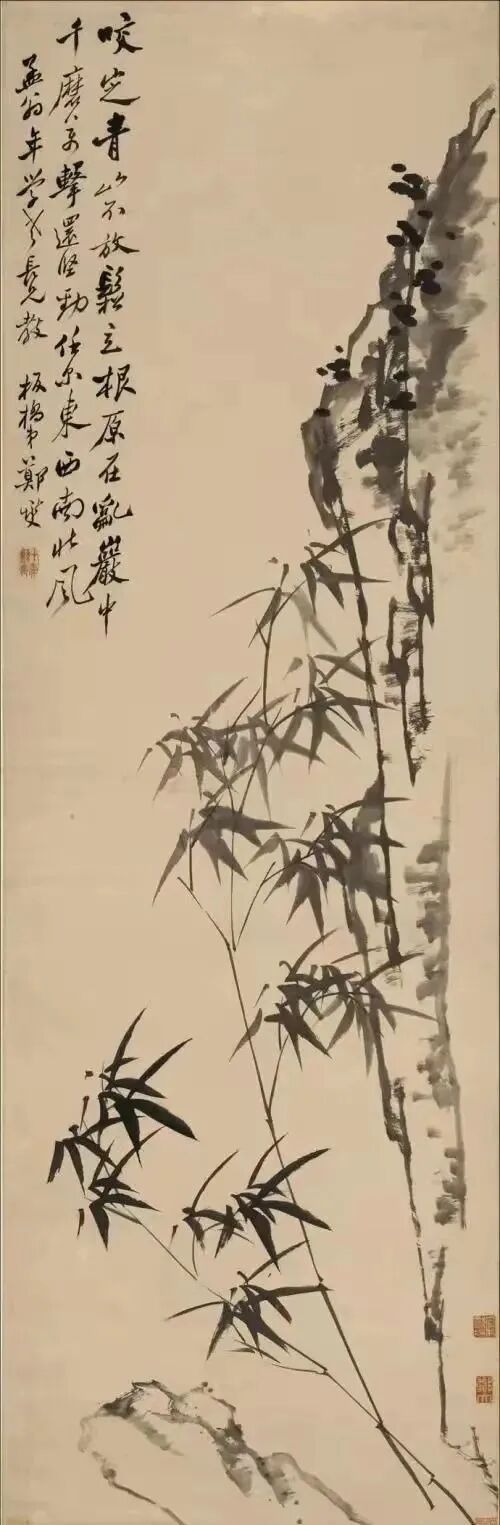 咬定青山不放鬆立根原在亂巖中
千磨万擊還堅勁任尔東西南北風
孟翁年学老長兄教 板橋弟鄭燮